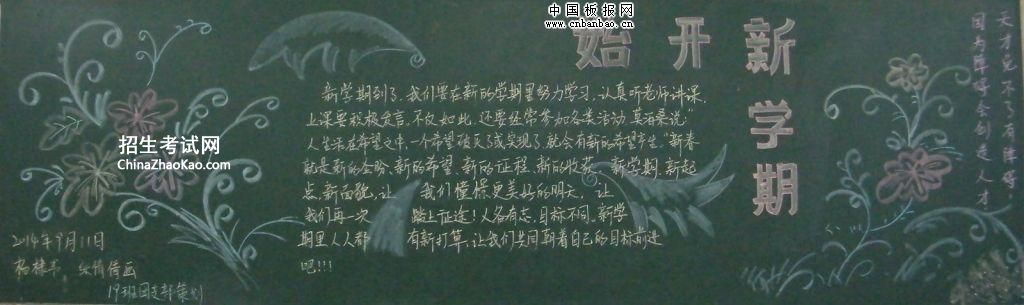 中国板报网
www.cnbanbao.cn
新学期
开始
招生考试网
ChinaZhaoKao.com
新学期到了,我们要在新的学期里努力学习,认真听老师讲课,
上课要积极发言,不仅如此,还要经常参加各类活动,莫泊桑说:"
人生活在希望之中,一个希望破灭了或实现了,就会有新的希望产生。"新春
就是新的企盼、新的希望、新的征程、新的收获、新学期、新起
点、新面貌,让 我们憧憬更美好的明天,让
我们再一次 踏上征途!人各有志,目标不同,新学
期里人人都 有新打算,让我们共同朝着自己的目标前进
吧!!!
天才免不了有障碍,
因为障碍会创造人才
2014年9月11日
19班团支部策划